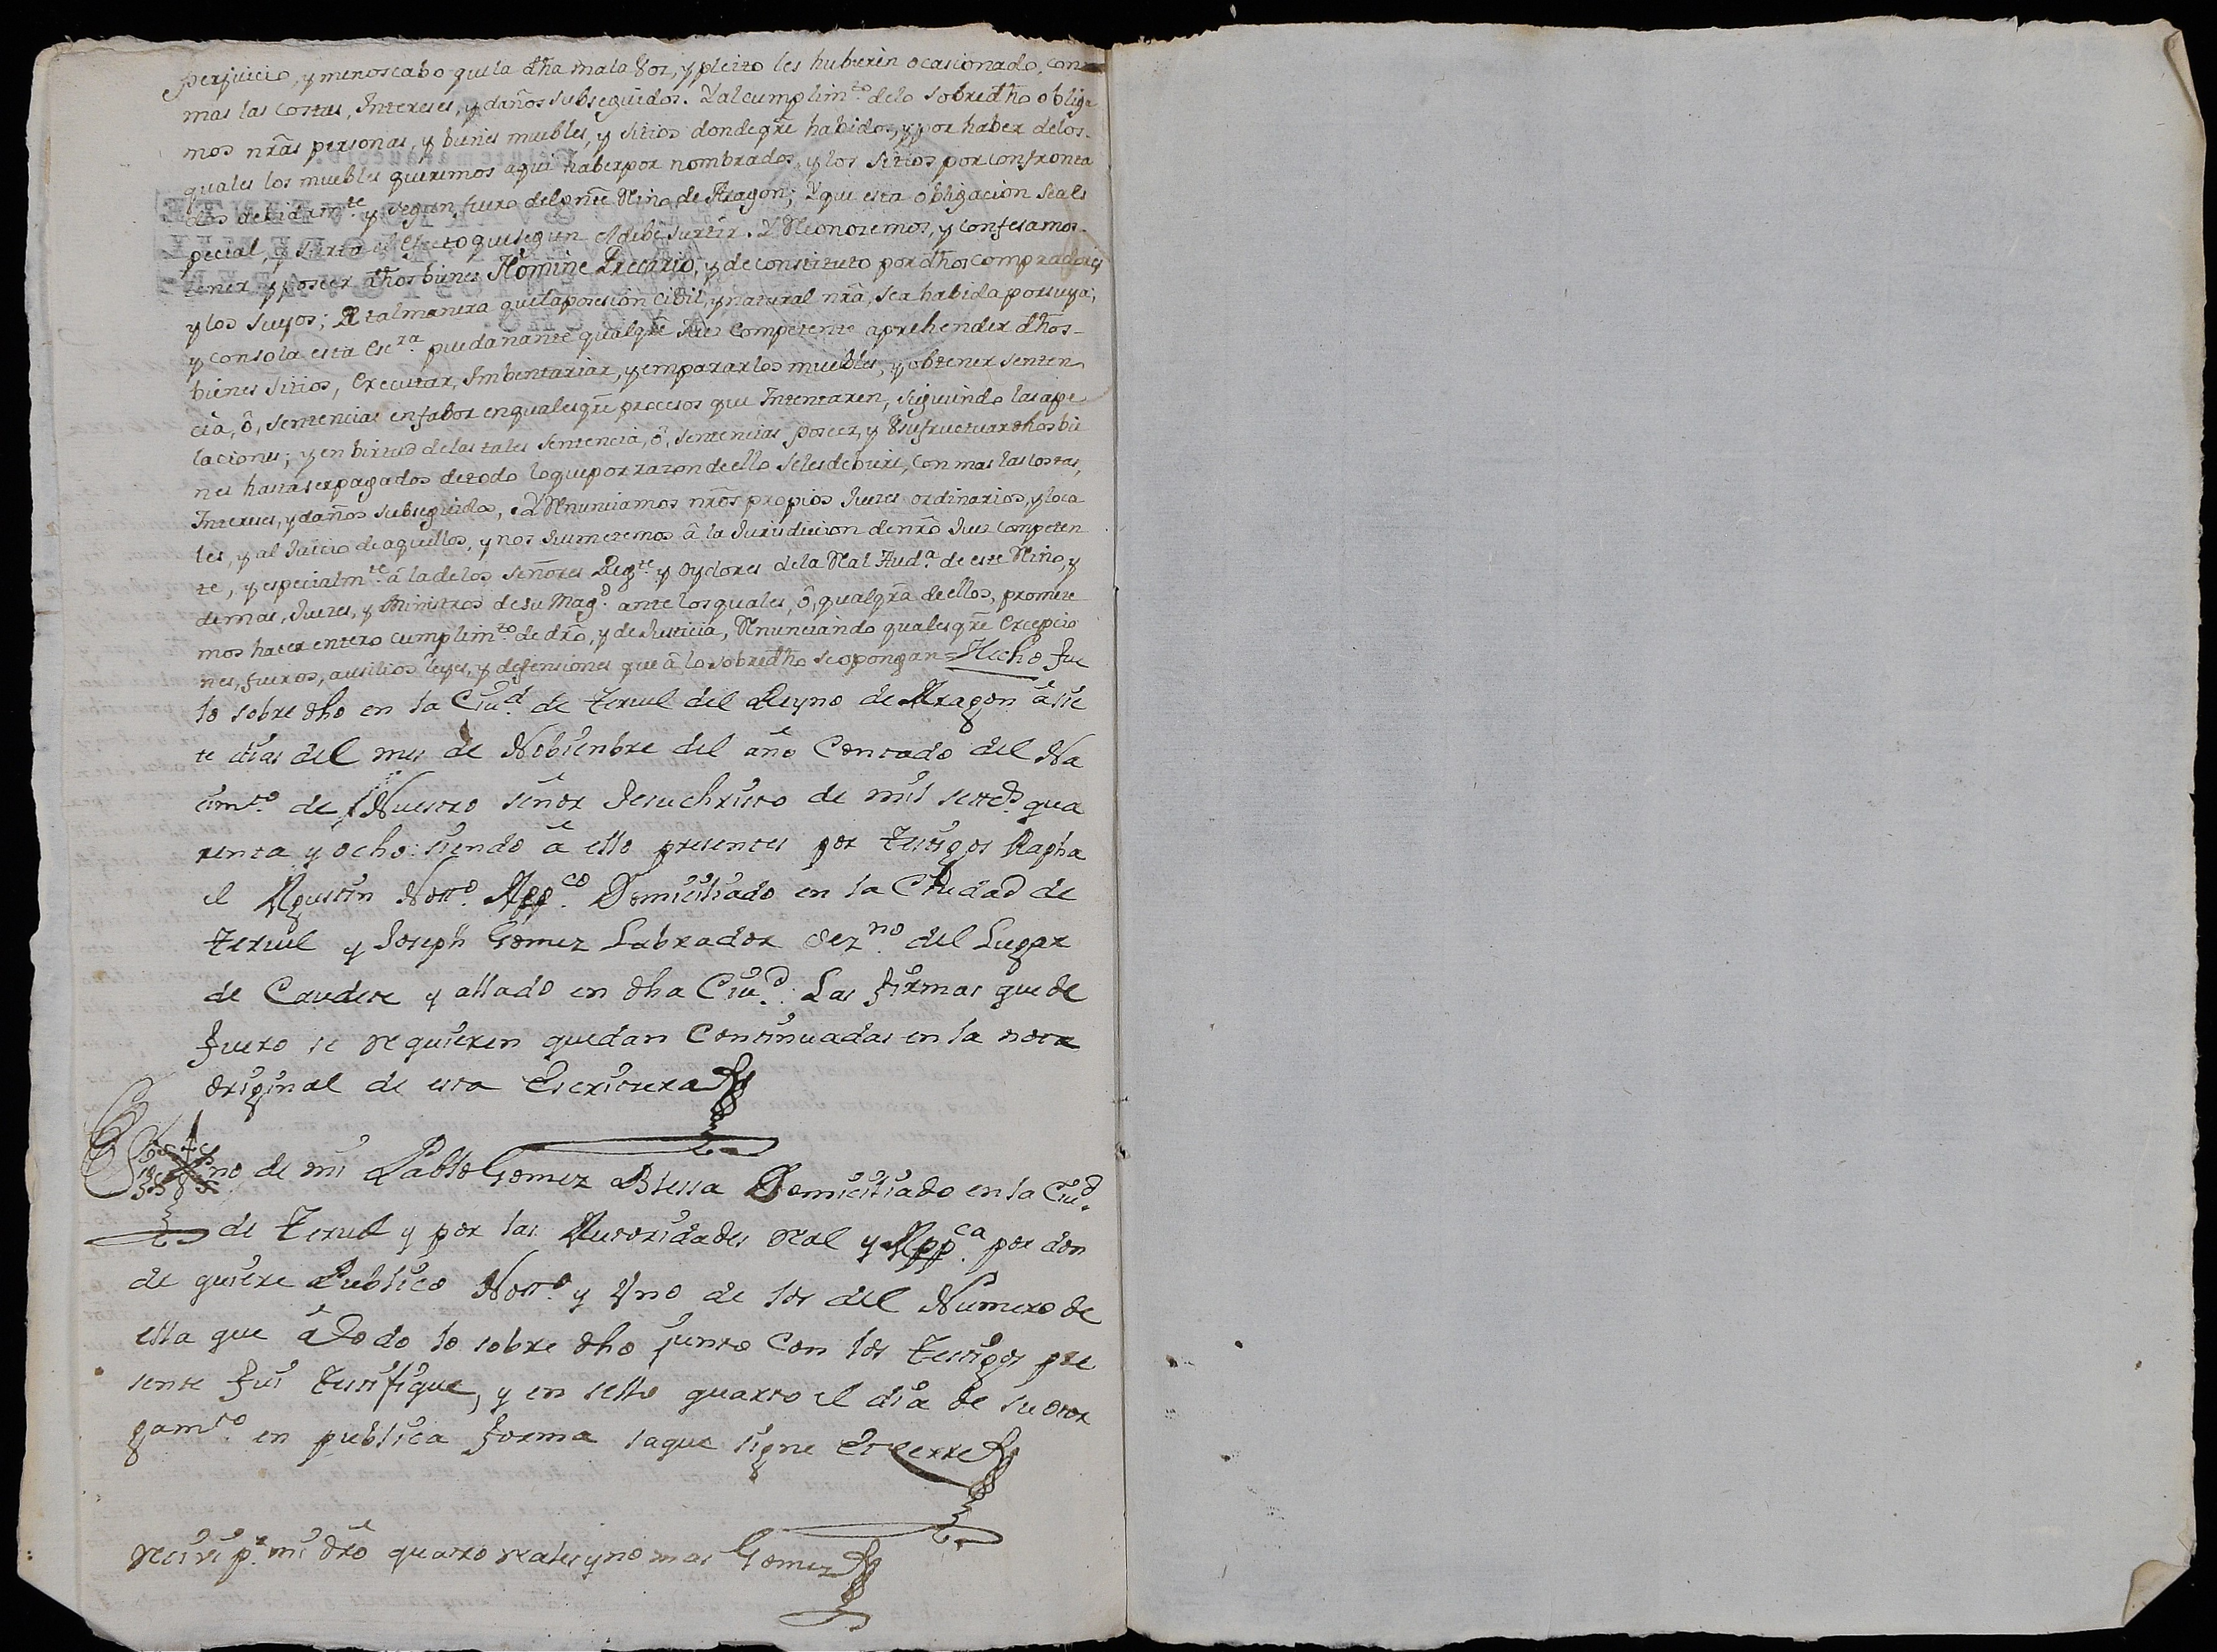 perjuicio, y menoscabo que la dha mala voz, y pleito les hubieren ocasionado, con
mas las costas, Intereses, y daños subseguidos. Y al cumplim.to delo sobredho obliga
mos nrãs personas, y bienes muebles, y sitios dondeqre habidos, y por haber delos
quales los muebles queremos aqui haber por nombrados, y los sitios por confronta
dos debidam.te y segun fuero del pñte Rño de Aragon; Y que esta obligacion sea es
pecial, y surta el efecto que segun el debe surtir. Y Reconocemos, y confesamos
tener y poseer dhos bienes Nomine Precario, y de constituto por dhos compradores
y los suyos; De tal manera que la posesion cibil, y natural nrã, sea habida por suya;
y con sola esta Esc.ra puedan ante qualqre Juez Competente aprehender dhos
bienes sitios, executar, Imbentariar, y emparar los muebles, y obtener senten
cia, ô, sentencias en fabor en qualesqre procesos que Intentaren, siguiendo las ape
laciones; y en birtud de las tales sentencia, ô, sentencias poseer, y Usufructuar dhos bie
nes hasta ser pagados de todo lo que por razon de ello se les debiere, con mas las costas,
Intereses, y daños subseguidos, Y Renunciamos nrõs propios Jueces ordinarios, y loca
les, y al Juicio de aquellos, y nos Jusmetemos â la Jurisdicion de nrõ Juez competen
te, y especialm.te â la de los señores Reg.te y Oydores de la Real Aud.a de este Rño, y
demas, Jueces, y Ministros de su Mag.d ante los quales, ô, qualqra de ellos, promete
mos hacer entero cumplim.to de drõ, y de Justicia, Renunciando qualesqre Excepcio
nes, fueros, ausilios leyes, y defensiones que â lo sobredho se opongan = Hecho fue
lo sobre dho en la Ciu.d de Teruel del Reyno de Aragon â sie
te dias del mes de Nobienbre del año Contado del Na
cim.to de Nuestro señor Jesuchristo de mil sette.s qua
renta y ocho: siendo â ello presentes por testigos Rapha
el Agustin Nott.o App.co Domiciliado en la Ciudad de
Teruel y Joseph Gomez Labrador vez.no del Lugar
de Caudete y allado en dha Ciu.d. Las firmas que de
fuero se requieren quedan Continuadas en la nota
original de esta Escritura
no de mi Pablo Gomez Blessa Domiciliado en la Ciu.d
de Teruel y por las Autoridades Real y App.ca por don
de quiere Publico Nott.o y Uno de los del Numero de
ella que â Todo lo sobre dho junto Con los testigos pre
sente fui testifique, y en sello quarto el dia de su otor
gam.to en publica forma saque signe Et Cerre
Recivi p.r mi drõ quatro reales y no mas Gomez